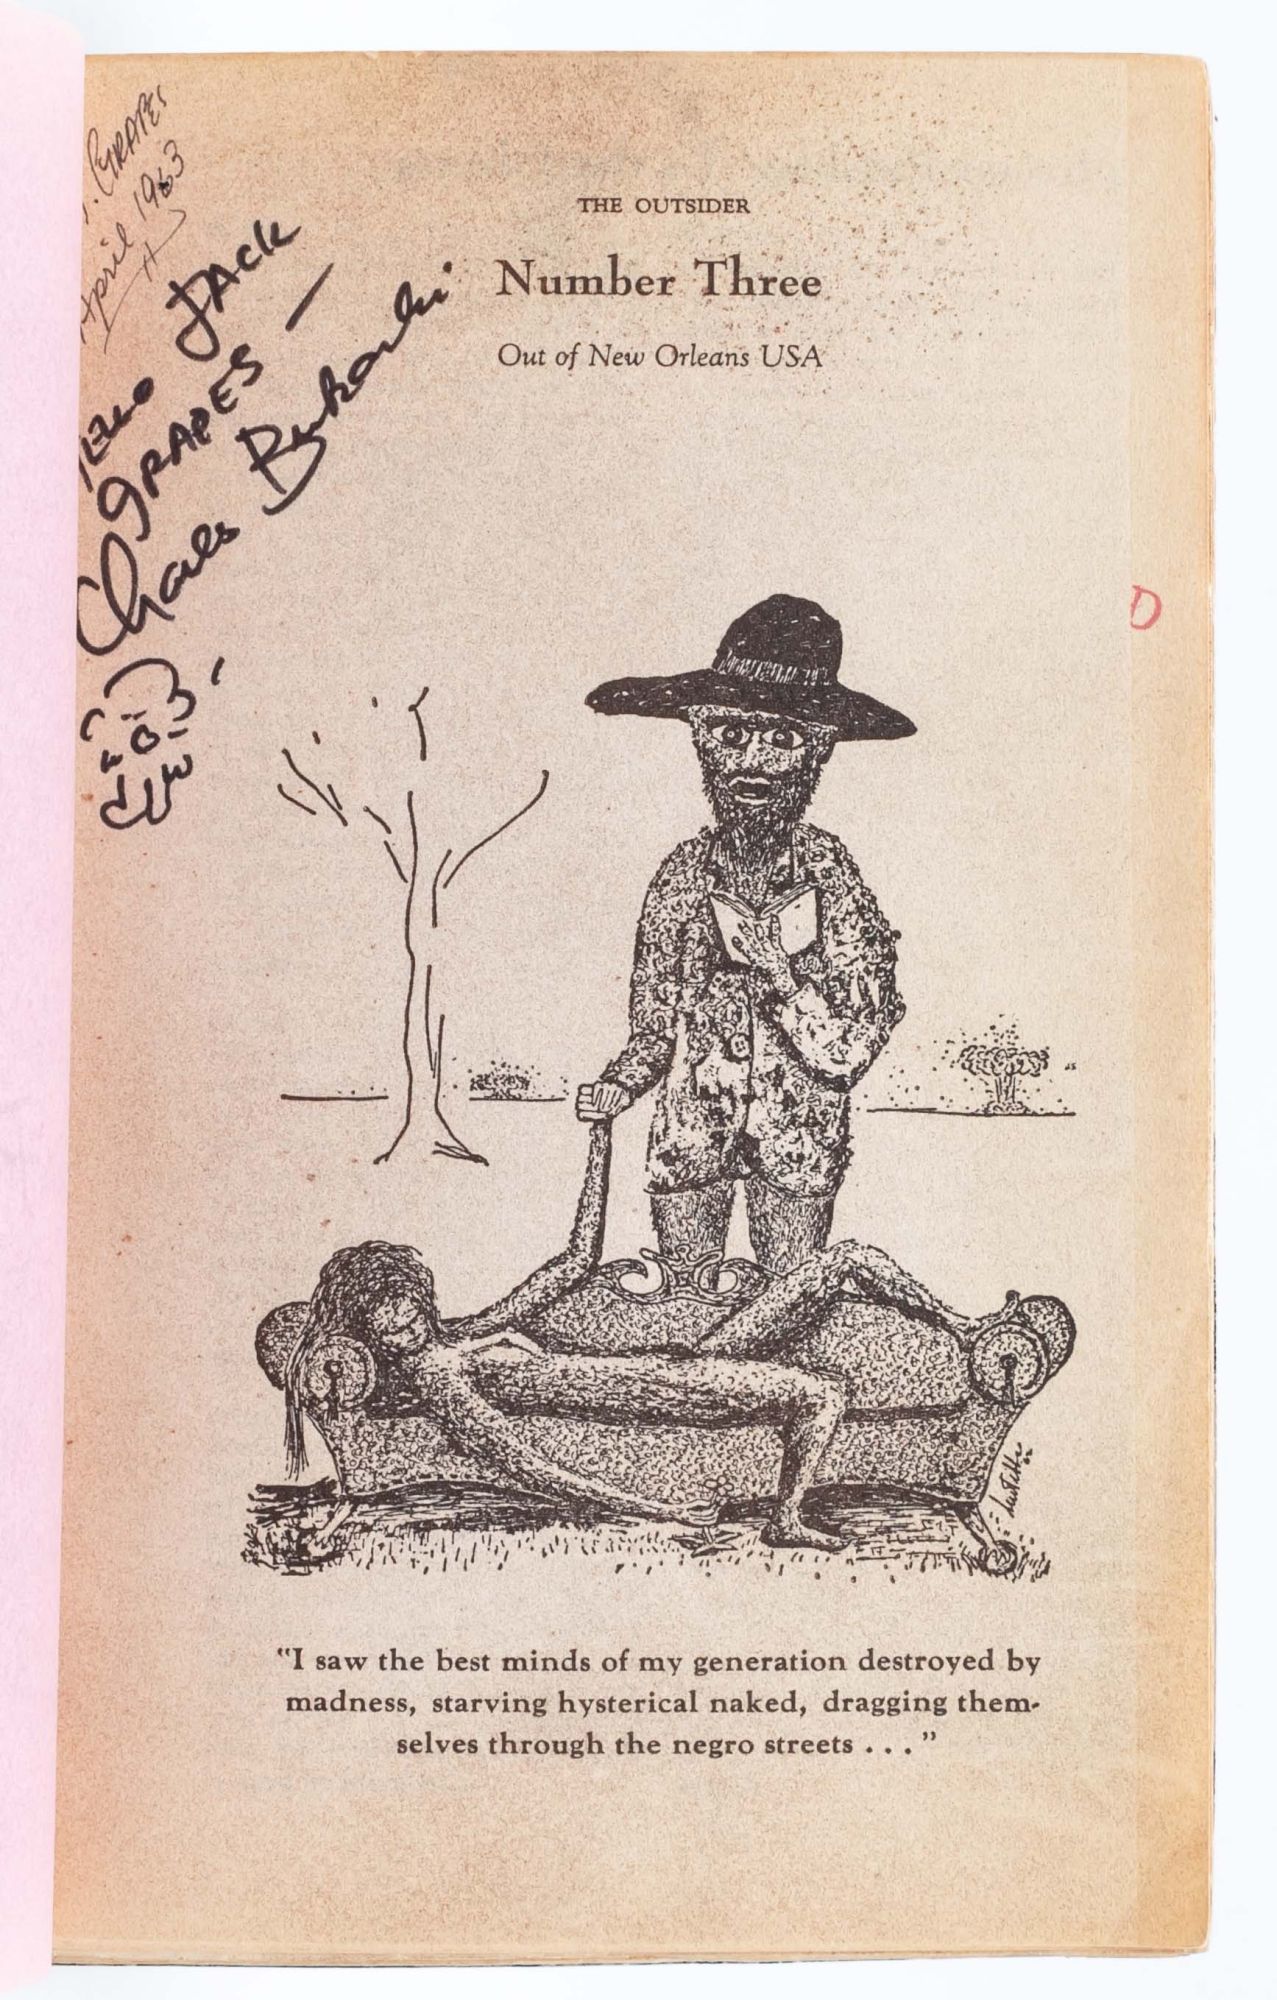 . GRAPES
April 1963
JACK
GRAPES —
Charles Bukowski
THE OUTSIDER
Number Three
Out of New Orleans USA
D
"I saw the best minds of my generation destroyed by
madness, starving hysterical naked, dragging them-
selves through the negro streets . . . "